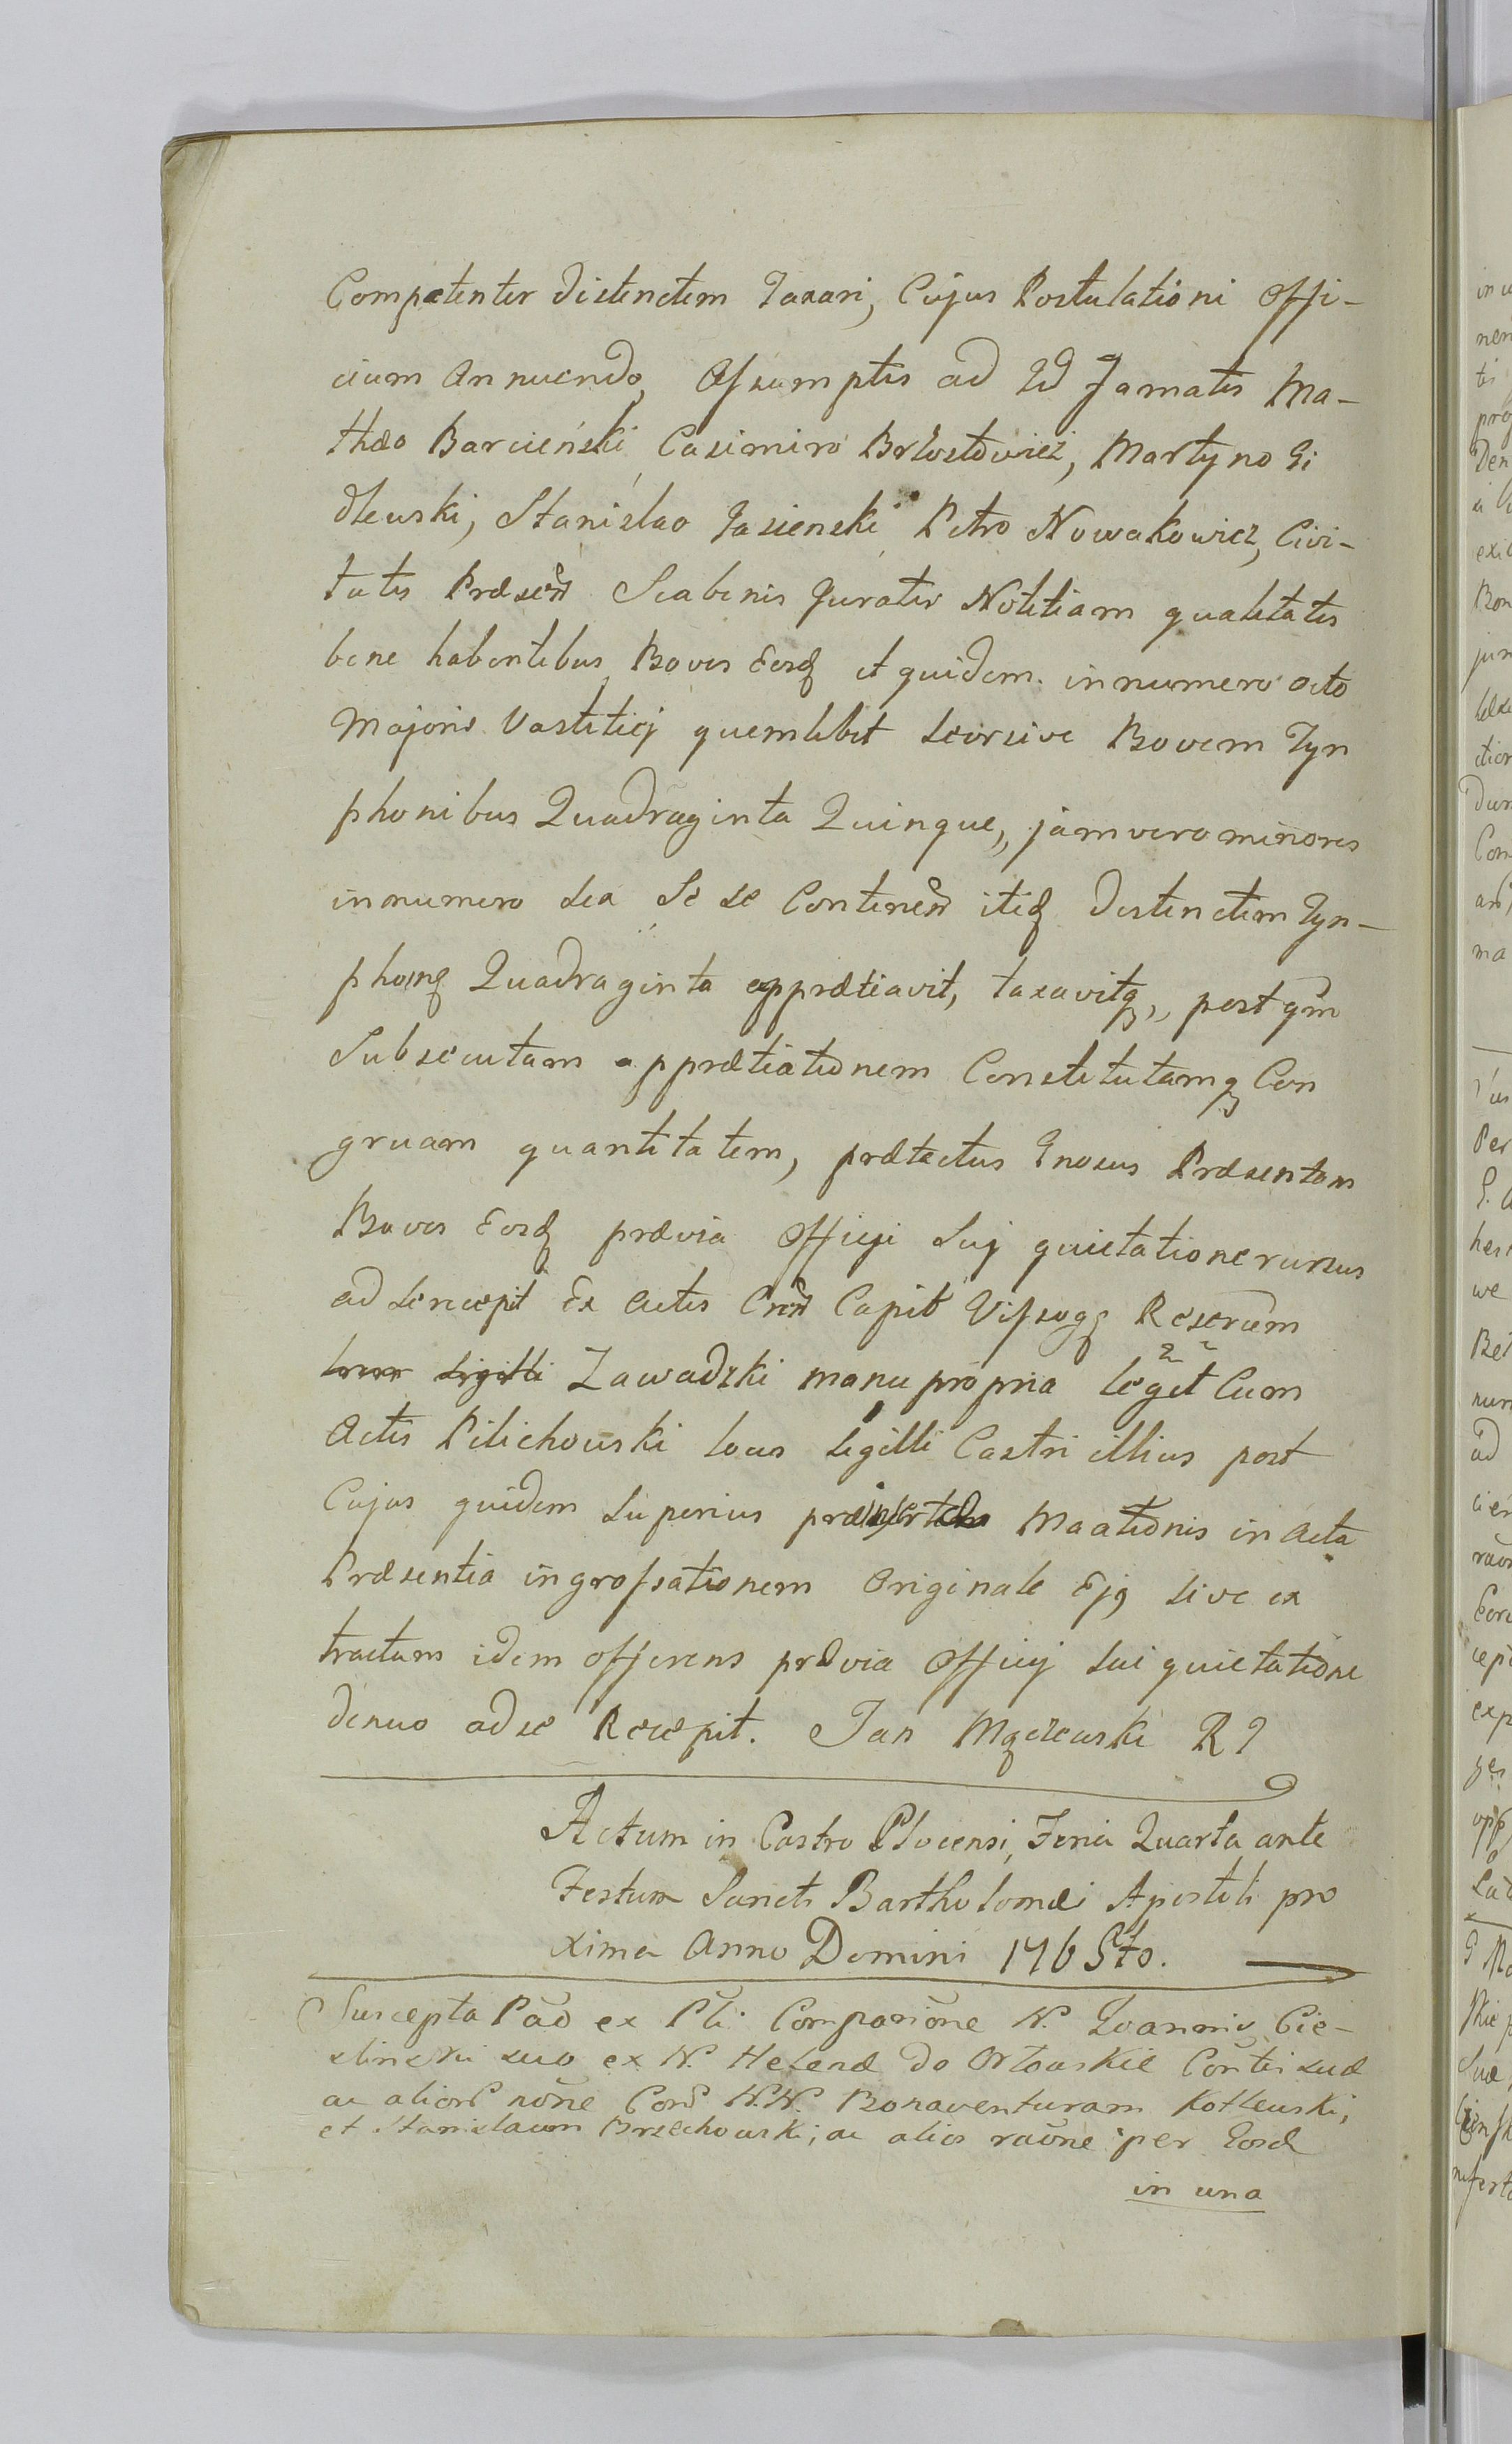 Competenter distinctim Taxari, Cujus Postulationi Offi-
cium Annuendo, Assumptis ad Id Famatis Ma-
thæo Barcieński Casimiro Brzostowicz, Martyno Gi
dlewski, Stanislao Jasienski Petro Nowakowicz, Civi-
tatis Præsen Scabinis Juratis Notitiam qualitatis
bene habentibus Boves Eosdq et quidem in numero octo
Majoris Vastitiej quemlibet seorsive Bovem Tyn
phonibus Quadraginta Quinque, jam vero minores
in numero sex Se se Continen itidq distinctim Tyn-
phonq Quadraginta appretiavit, taxavitq, post qm
Subsecutam appretiationem Constitutamq Con
gruam quantitatem, prætactus Gnosus Præsentans
Boves Eosdq prævia Officij Suj quietatione rursus
ad se recepit Ex Actis Cren Capit Vissogq Rescrum
locus Sigilli Zawadzki manu propria legit Cum
Actis Pilichowski locus Sigilli Castri illius post
Cujus quidem Superius præinsertæ Maationis in Acta
Præsentia ingrossationem Originale Ejq sive ex
tractum idem offerens prævia Officij Sui quietatione
denuo ad se Recepit. Jan Mączewski R
Actum in Castro Plocensi, Feria Quarta ante
Festum Sancti Bartholomæi Apostoli pro
xima Anno Domini 1765to.
Suscepta Pão ex Pli Comparione N. Joannis Cie-
slinski suo ex N. Helenæ de Orłowskie Contis suæ
ac alior none Cord N.N. Bonaventuram Kotlewski,
et Stanislaum Brzechowski, ac alios raone per Eosd
in una